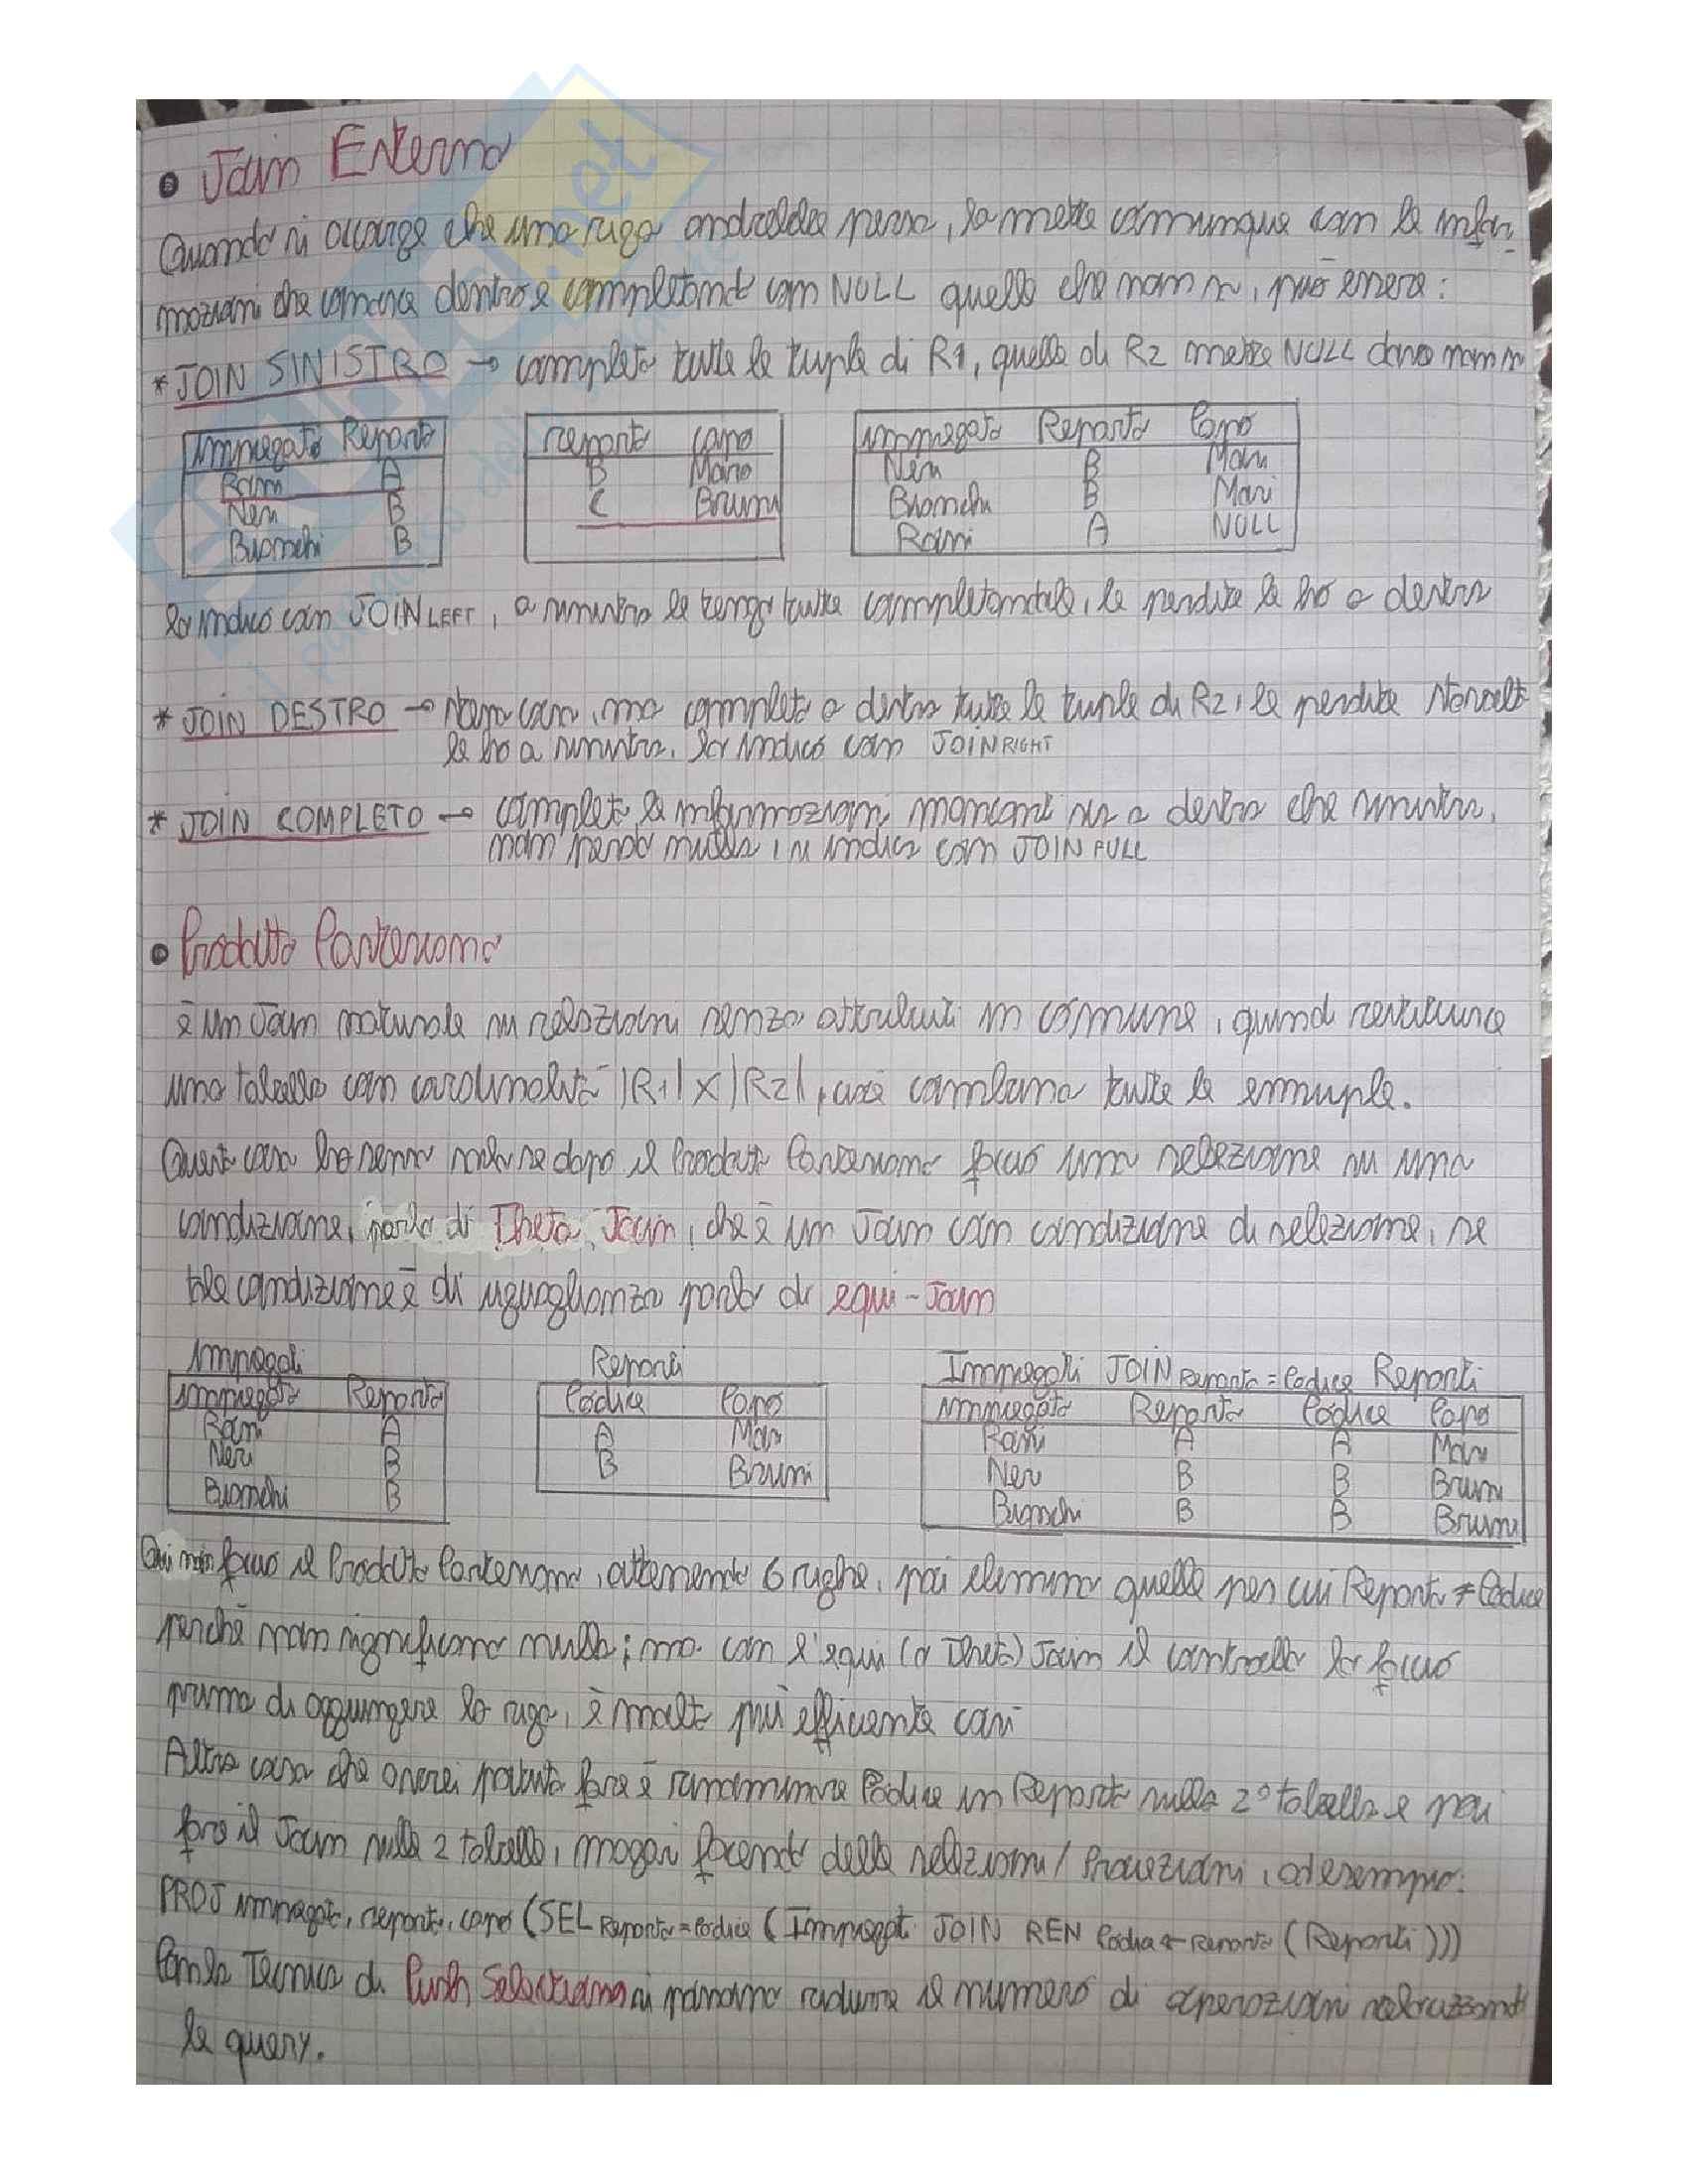 • Join Esterno
Quando si accorge che una riga andrebbe persa, la mette comunque con le infor-
mazioni che conosce dentro e completando con NULL quelle che non sa, può essere:
* JOIN SINISTRO → completa tutte le tuple di R1, quelle di R2 mette NULL dove non sa
Impiegato Reparto
Rossi A
Neri B
Bianchi B
reparto capo
B Mario
C Bruni
impiegato Reparto Capo
Neri B Mori
Bianchi B Mori
Rossi A NULL
lo indico con JOIN LEFT, a sinistra le tengo tutte completandole, le perdite le ho a destra
* JOIN DESTRO → stessa cosa, ma completo a destra tutte le tuple di R2, le perdite stavolta
le ho a sinistra, lo indico con JOIN RIGHT
* JOIN COMPLETO → completa le informazioni mancanti sia a destra che sinistra,
non perdo nulla, si indica con JOIN FULL
• Prodotto Cartesiano
è un Join naturale su relazioni senza attributi in comune, quindi restituisce
una tabella con cardinalità |R1| X |R2|, cioè combiana tutte le ennuple.
Questa cosa ha senso solo se dopo il Prodotto Cartesiano faccio una selezione su una
condizione, parlo di Theta Join, che è un Join con condizione di selezione, se
tale condizione è di uguaglianza parlo di equi-Join
Impiegati
Impiegato Reparto
Rossi A
Neri B
Bianchi B
Reparti
Codice Capo
A Mori
B Bruni
Impiegati JOIN Reparto = Codice Reparti
impiegato Reparto Codice Capo
Rossi A A Mori
Neri B B Bruni
Bianchi B B Bruni
Qui non faccio il Prodotto Cartesiano, ottenendo 6 righe, poi elimino quelle per cui Reparto ≠ Codice
perchè non significano nulla; ma con l'equi (o Theta) Join il controllo lo faccio
prima di aggiungere la riga, è molto più efficiente così
Altra cosa che avrei potuto fare è rinominare Codice in Reparto nella 2° tabella e poi
fare il Join sulle 2 tabelle, magari facendo delle selezioni / Proiezioni, ad esempio:
PROJ impiegato, reparto, capo (SEL Reparto = Codice (Impiegati JOIN REN Codice ← Reparto (Reparti)))
Con la Tecnica di Push Selections si possono ridurre il numero di operazioni velocizzando
le query.